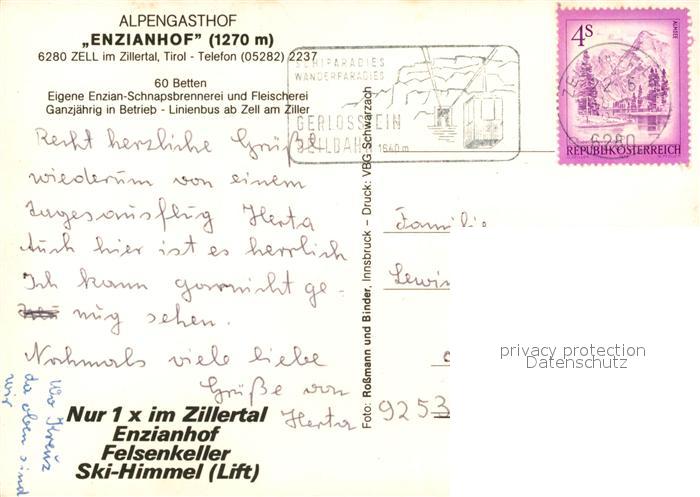 ALPENGASTHOF
„ENZIANHOF" (1270 m)
6280 ZELL im Zillertal, Tirol - Telefon (05282) 2237
60 Betten
Eigene Enzian-Schnapsbrennerei und Fleischerei
Ganzjährig in Betrieb - Linienbus ab Zell am Ziller
SCHIPARADIES
WANDERPARADIES
GERLOSSTEIN
SEILBAHN 1640m
4s
ALMSEE
6280
REPUBLIK ÖSTERREICH
Recht herzliche Grüße
wiederum von einem
Tagesausflug Herta
Auch hier ist es herrlich
Ich kann garnicht ge-
nug sehen.
Nochmals viele liebe
Grüße von
Herta
Wo Kreuz
da oben sind
wir
Nur 1 x im Zillertal
Enzianhof
Felsenkeller
Ski-Himmel (Lift)
Foto: Roßmann und Binder, Innsbruck – Druck: VBG Schwarzach
Familie
9253
privacy protection
Datenschutz